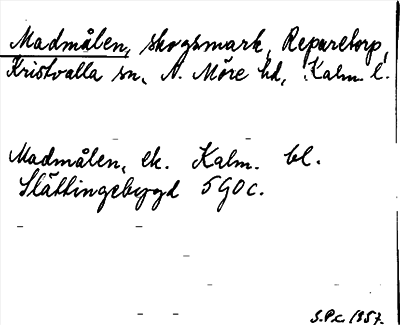 Madmålen, skogsmark, Reparetorp,
Kristvalla sn, N. Möre hd, Kalm. l.
Madmålen, ek. Kalm. bl.
Slättingebygd 5G0c.
S.P.c. 1957.